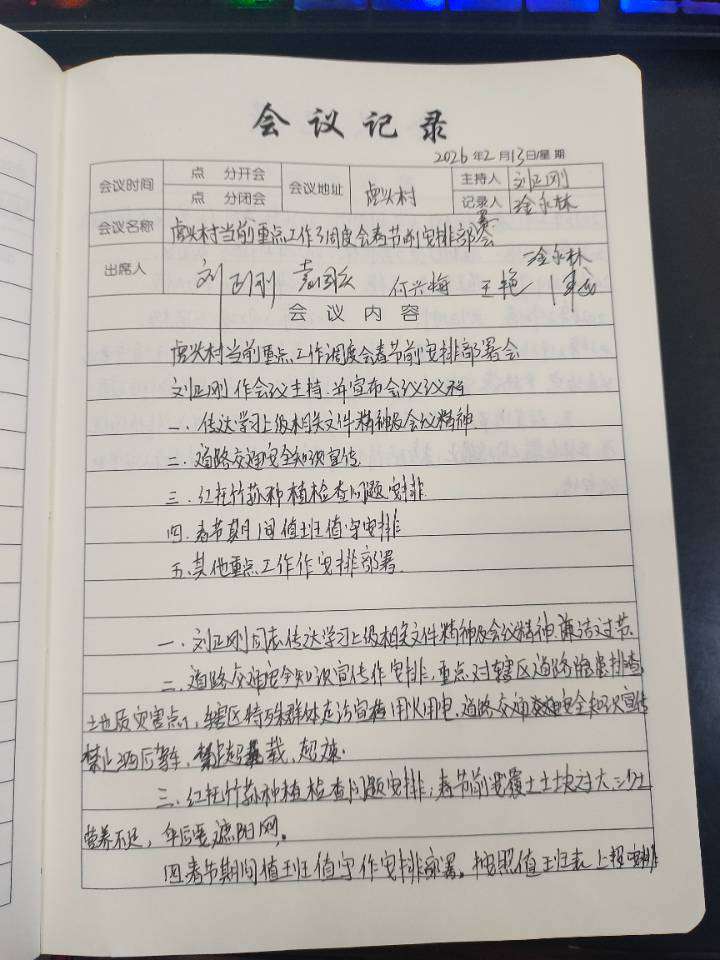 会议记录
2026年2月13日/星期
会议时间 点 分开会 会议地址 虎头村 主持人 刘正刚
点 分闭会 记录人 徐永林
会议名称 虎头村当前重点工作调度会春节前安排部署会
出席人 刘正刚 袁国众 何兴梅 王艳 徐永林
会议内容
虎头村当前重点工作调度会春节前安排部署会
刘正刚作会议主持,并宣布会议议程
一、传达学习上级相关文件精神及会议精神
二、道路交通安全知识宣传
三、红托竹荪种植检查问题安排
四、春节期间值班值守安排
五、其他重点工作作安排部署.
一、刘正刚同志传达学习上级相关文件精神及会议精神、廉洁过节.
二、道路交通安全知识宣传作安排,重点对辖区道路隐患排查,
土地质灾害点,辖区特殊群体走访宣传用火用电、道路交通安全知识宣传
禁止酒后驾车,禁止超载,超速.
三、红托竹荪种植检查问题安排;春节前要覆土土块过大,
营养不足,年后要遮阳网。
四、春节期间值班值守作安排部署。按照值班表上报安排